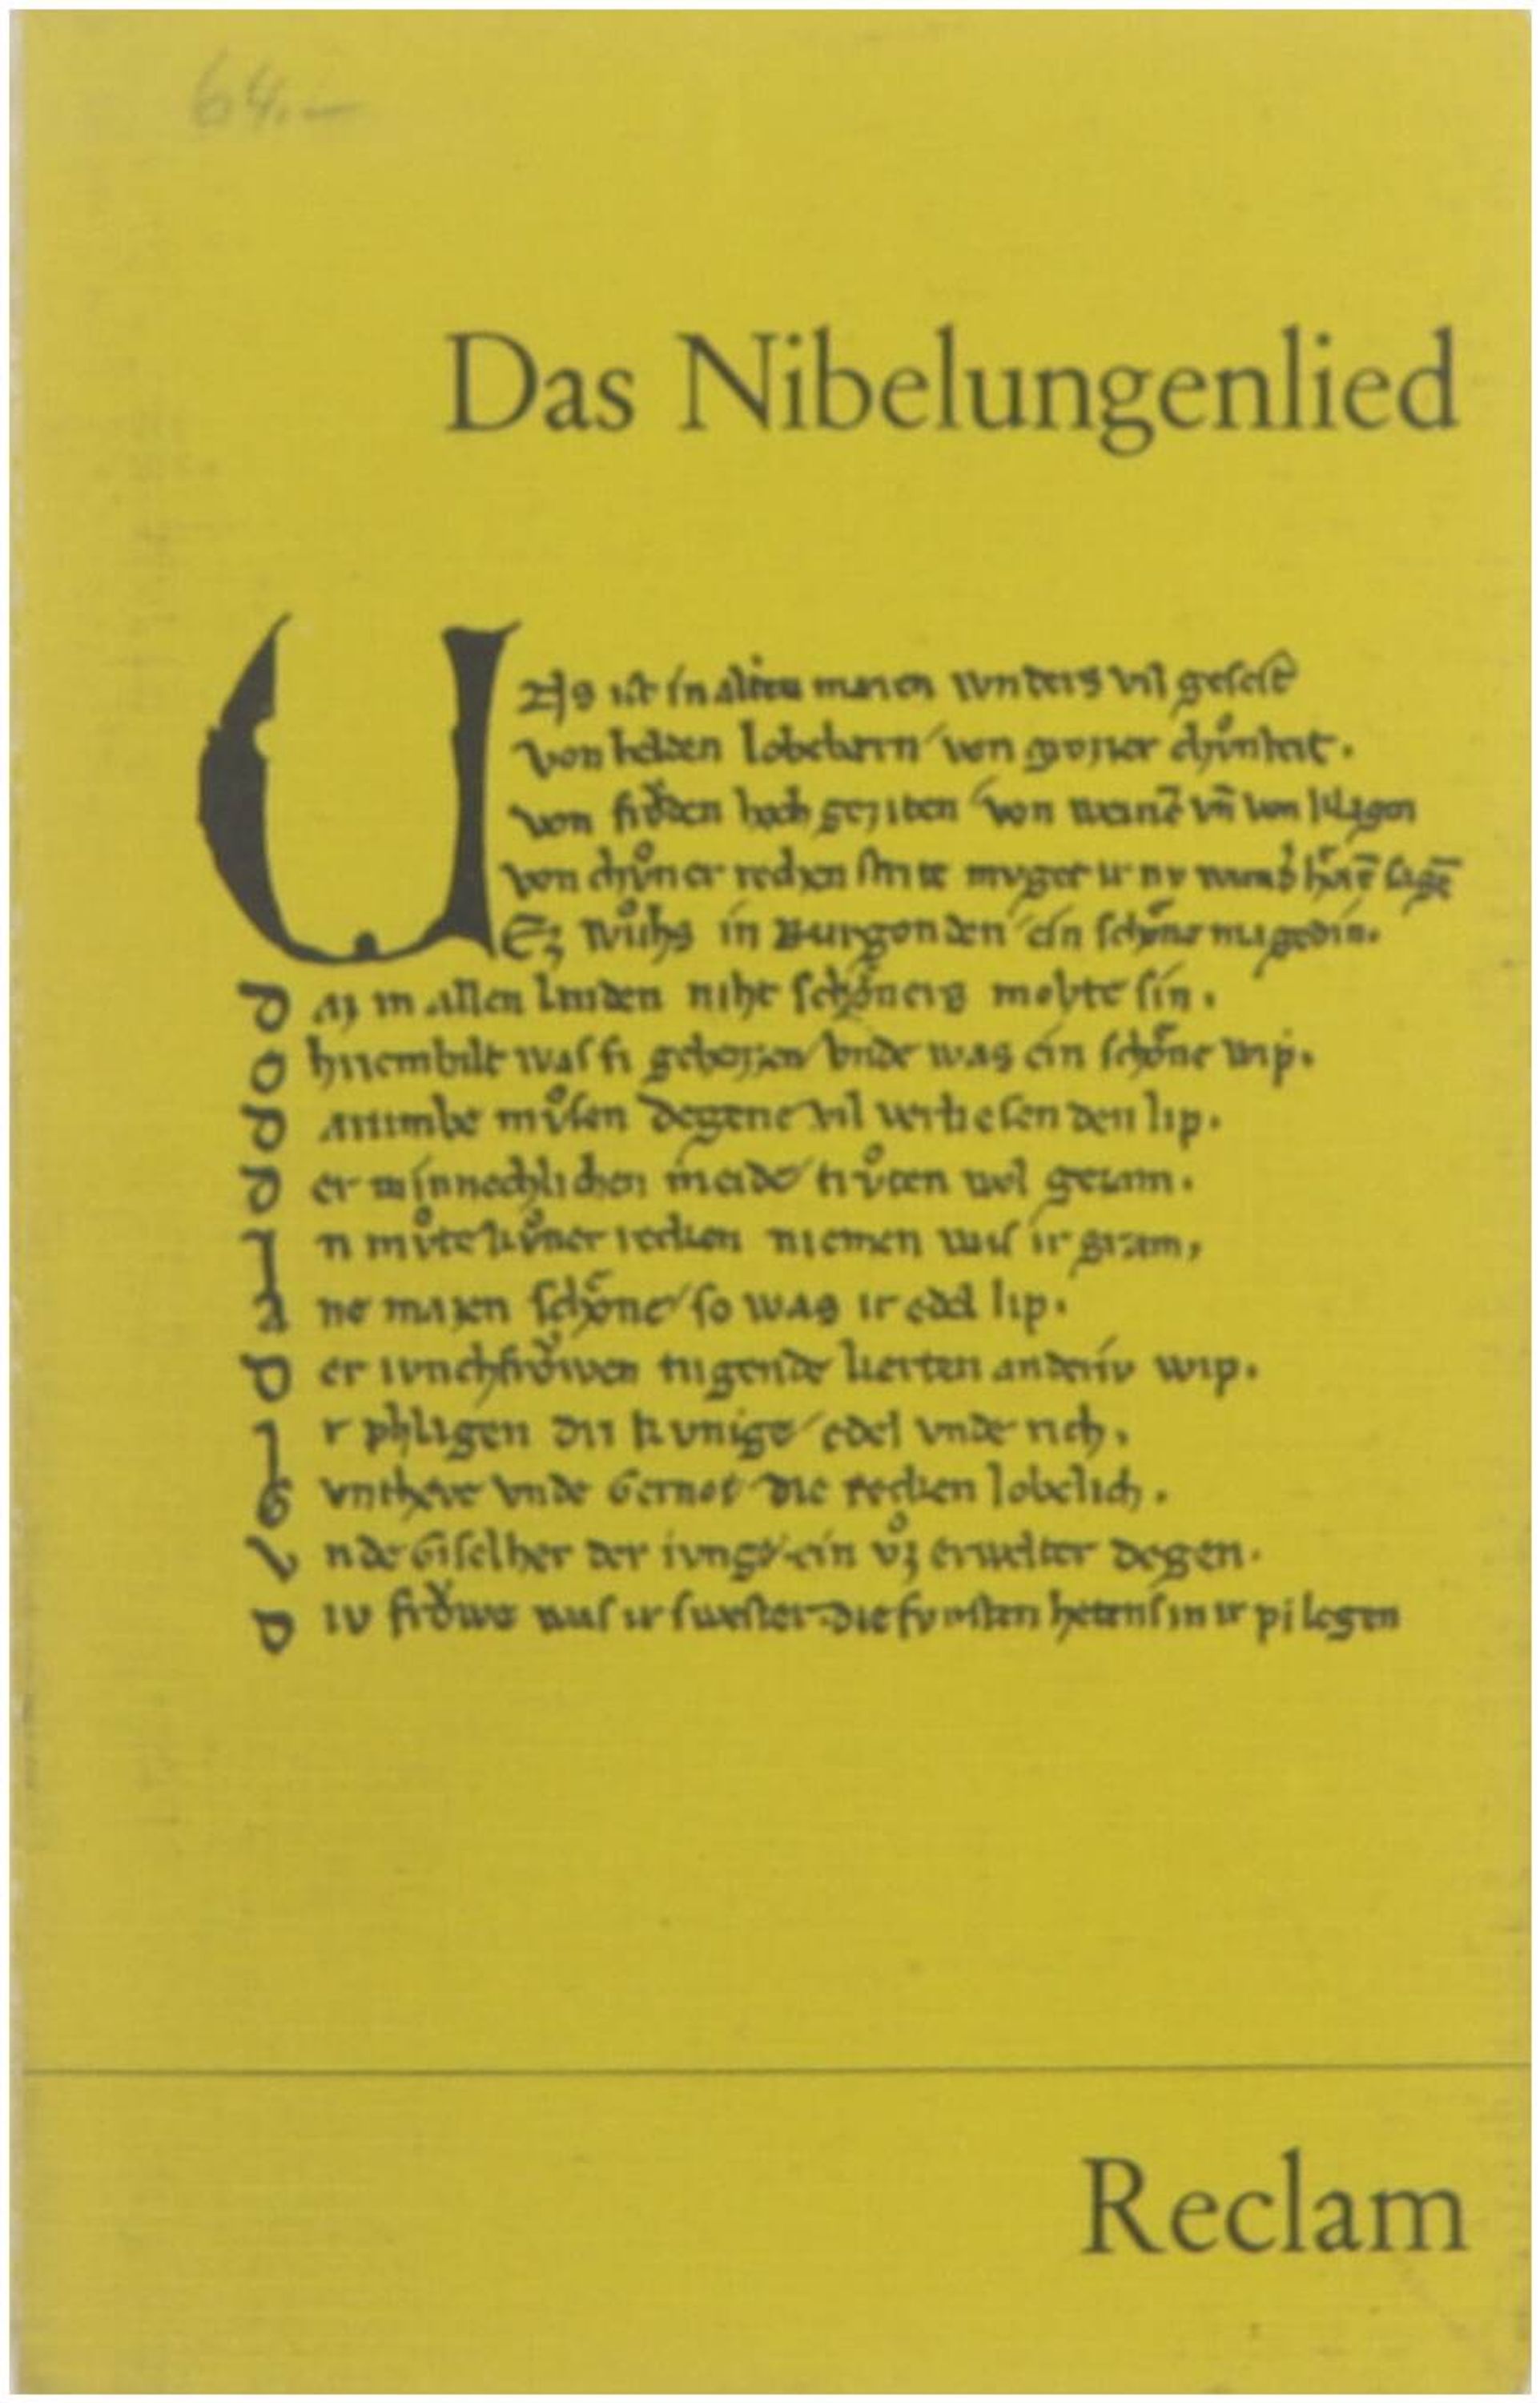 64.–
Das Nibelungenlied
U
NS ist in alten maren wnders vil geseit
von helden lobebærn von grozzer chůnheit.
von frỏden hoch geziten von weinē vn̄ von klagen
von chůner rechen strite mvget ir nv wund hörē sagē
Ez wůhs in Burgonden ein schỏne magedin.
d az in allen landen niht schỏners mohte sin.
c hriemhilt was si geheizzen vnde was ein schỏne wip.
d arumbe můsen degene vil verliesen den lip.
d er minnechlichen meide trůten wol gezam.
I n můte kůner rechen niemen was ir gram,
a ne mazen schỏne so was ir edel lip.
D er ivnchfrỏwen tugende zierten anderiv wip.
I r phlagen dri kvnige edel vnde rich.
G vnthere vnde Gernot die rechen lobelich.
v nde Giselher der ivnge ein vz erwelter degen.
D iv frỏwe was ir swester die fvrsten hetens in ir pflegen
Reclam